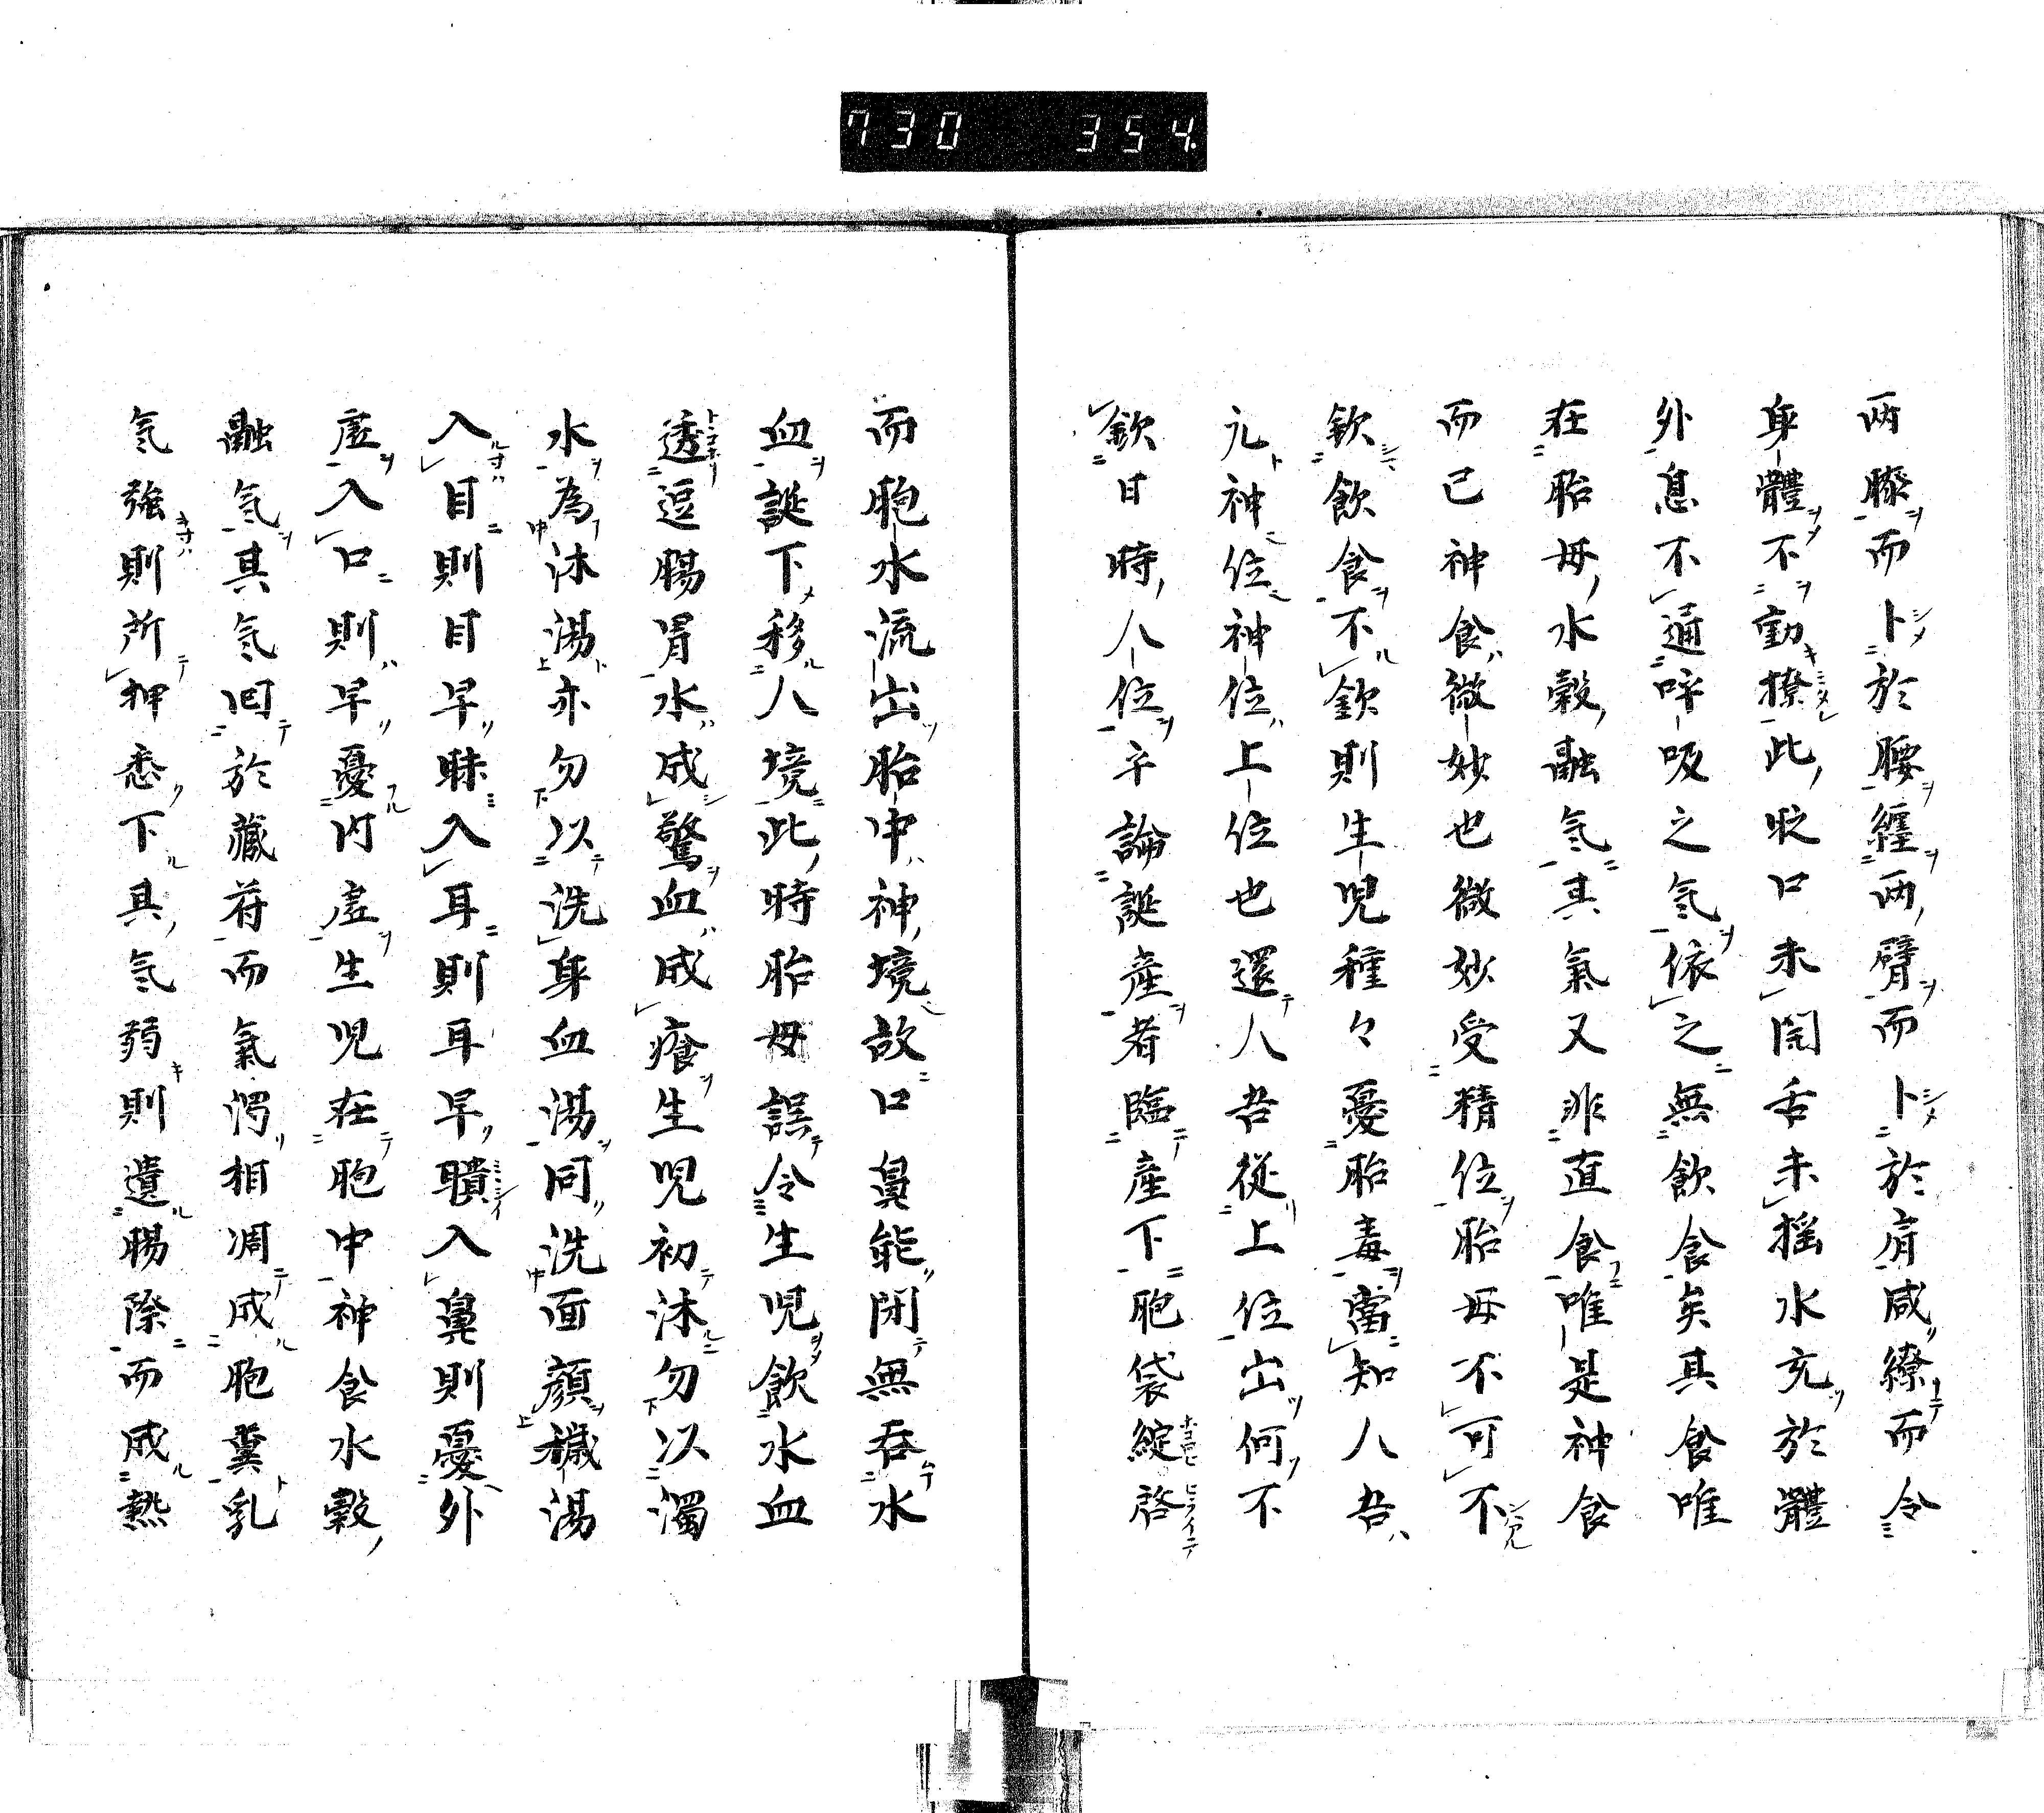 730 354
両膝而卜於腰纏両臂而卜於肩咸繚而令
身體不動撩此収口未開舌未揺水充於體
外息不通呼吸之氣依之無飲食矣其食唯
在胎母水穀融氣其氣又非直食唯是神食
而已神食微妙也微妙受精位胎母不可不
欽飲食不欽則生児種々憂胎毒當知人吾
元神位神位上位也還人吾従上位出何不
欽日時人位乎論誕産者臨産下胞袋綻啓
而胞水流出胎中神境故口鼻能閉無呑水
血誕下移人境此時胎母誤令生児飲水血
透逗腸胃水成驚血成癢生児初沐勿以濁
水為沐湯亦勿以洗身血湯同洗面顔穢湯
入目則目早眛入耳則耳早聵入鼻則憂外
虚入口則早憂内虚生児在胞中神食水穀
融氣其氣囘於蔵苻而氣濁相凋成胞糞乳
氣強則所押悉下其氣弱則遺腸際而成熱